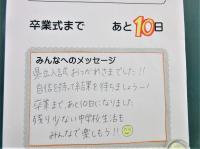 卒業式まで あと10日
みんなへのメッセージ
県立入試おつかれさまでした!!
自信を持って結果を待ちましょうー!
卒業まで、あと10日になりました
残り少ない中学校生活も
みんなで楽しもう!!